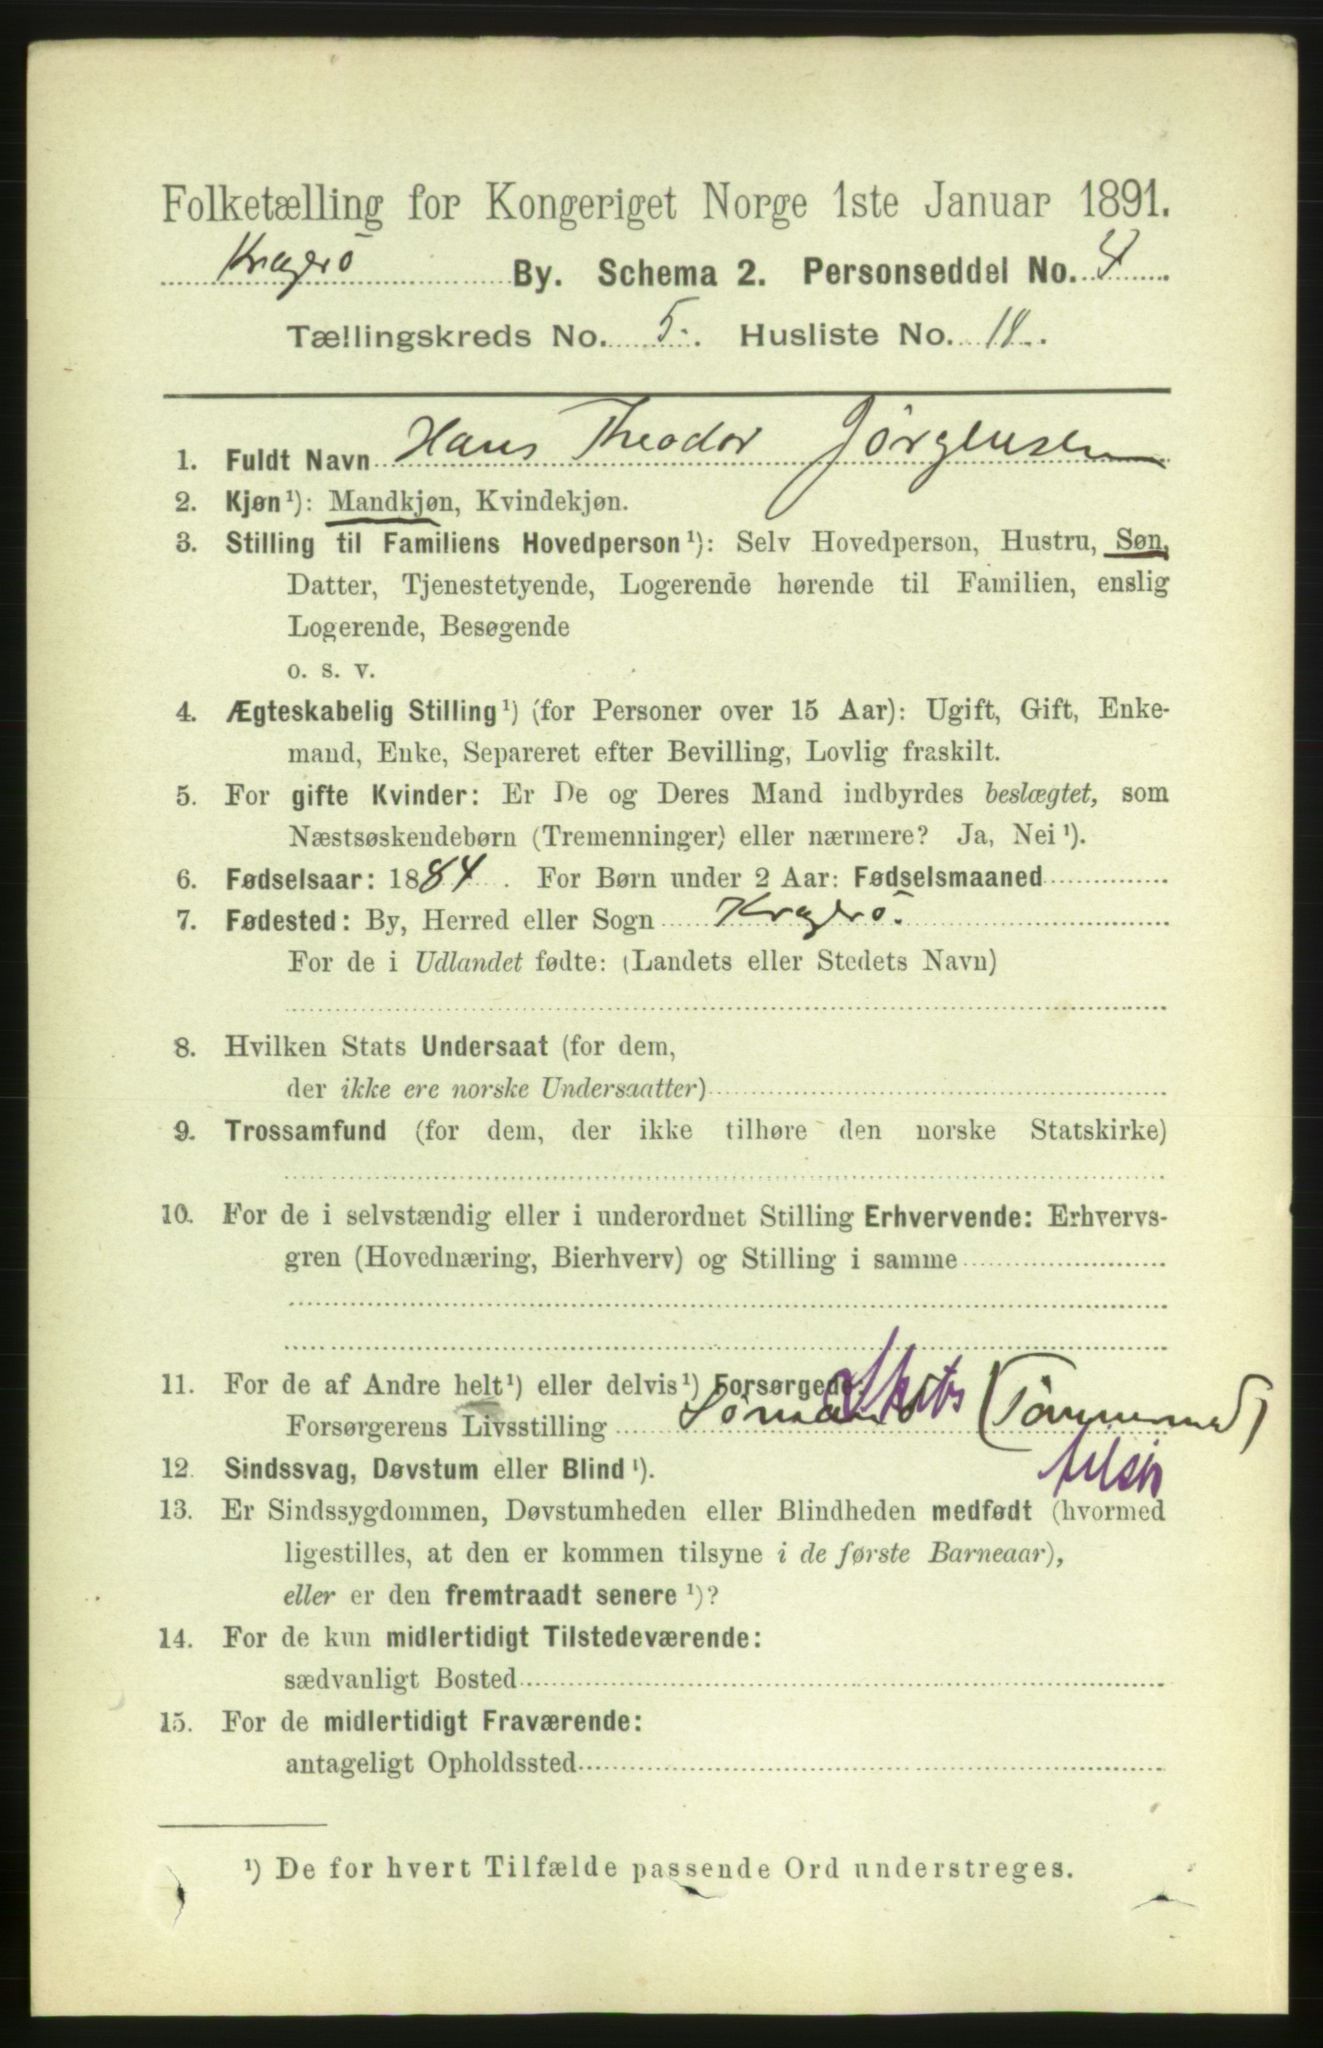 Folketælling for Kongeriget Norge 1ste Januar 1891.
Kragerö By. Schema 2. Personseddel No. 4
Tællingskreds No. 5. Husliste No. 18.
1. Fuldt Navn Hans Theodor Jörgensen
2. Kjøn¹): Mandkjøn, Kvindekjøn.
3. Stilling til Familiens Hovedperson¹): Selv Hovedperson, Hustru, Søn,
Datter, Tjenestetyende, Logerende hørende til Familien, enslig
Logerende, Besøgende
o. s. v.
4. Ægteskabelig Stilling¹) (for Personer over 15 Aar): Ugift, Gift, Enke-
mand, Enke, Separeret efter Bevilling, Lovlig fraskilt.
5. For gifte Kvinder: Er De og Deres Mand indbyrdes beslægtet, som
Næstsøskendebørn (Tremenninger) eller nærmere? Ja, Nei¹).
6. Fødselsaar: 1884. For Børn under 2 Aar: Fødselsmaaned
7. Fødested: By, Herred eller Sogn Kragerö.
For de i Udlandet fødte: (Landets eller Stedets Navn)
8. Hvilken Stats Undersaat (for dem,
der ikke ere norske Undersaatter)
9. Trossamfund (for dem, der ikke tilhøre den norske Statskirke)
10. For de i selvstændig eller i underordnet Stilling Erhvervende: Erhvervs-
gren (Hovednæring, Bierhverv) og Stilling i samme
11. For de af Andre helt¹) eller delvis¹) Forsørgede: Skibs
Forsørgerens Livsstilling Sömand (Tömmermd)
12. Sindssvag, Døvstum eller Blind¹).
13. Er Sindssygdommen, Døvstumheden eller Blindheden medfødt (hvormed
ligestilles, at den er kommen tilsyne i de første Barneaar),
eller er den fremtraadt senere¹)?
14. For de kun midlertidigt Tilstedeværende:
sædvanligt Bosted
15. For de midlertidigt Fraværende:
antageligt Opholdssted
¹) De for hvert Tilfælde passende Ord understreges.